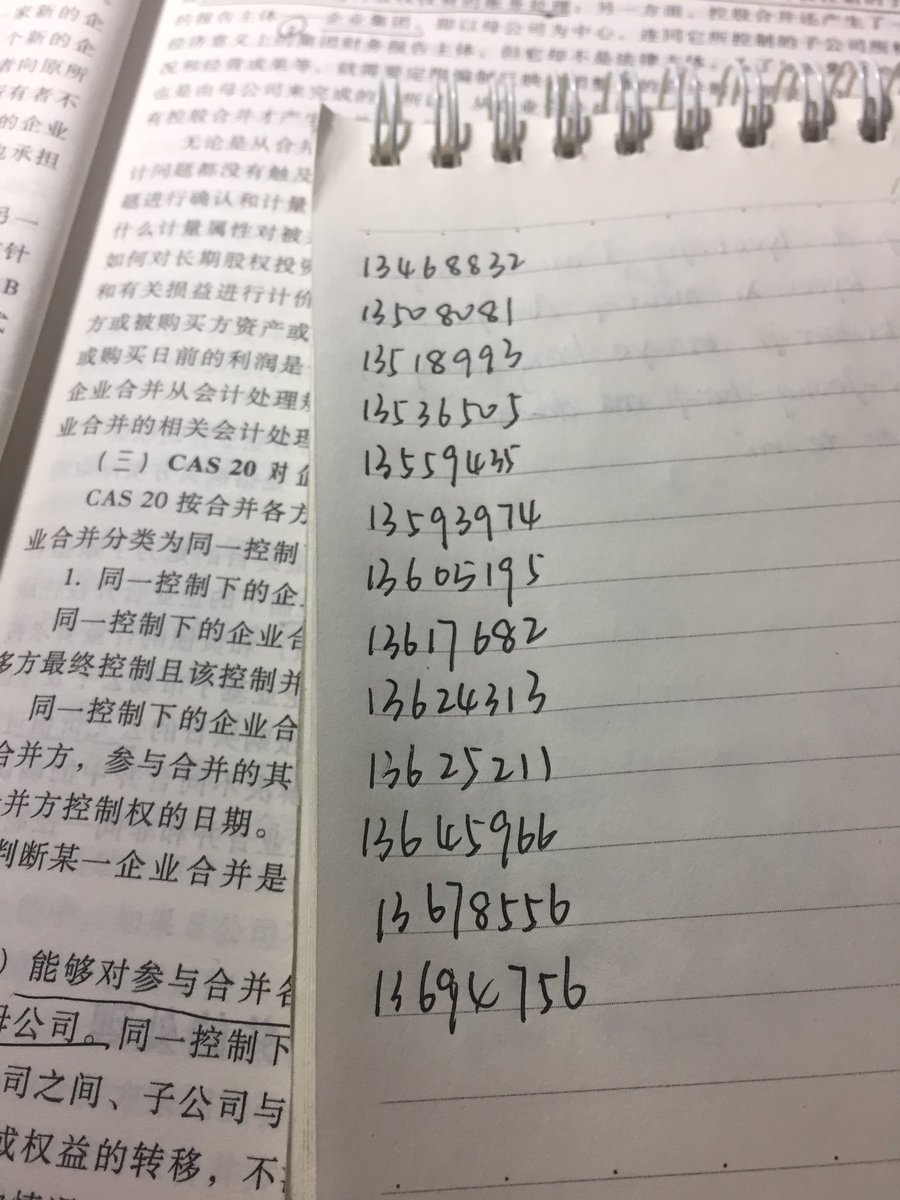 家新的企
个新的企
者向原所
所有者不
的企业
也承担
另一
针
B
的报告主体——企业集团，即以母公司为中心，连同它所控制的子公司
经济意义上的集团财务报告主体，但它却不是法律主体，
况和经营成果等，就需要定期编制
也是由母公司来完成的
有控股合并才产生
无论是从合并
计问题都没有触及
题进行确认和计量
什么计量属性对被
如何对长期股权投资
和有关损益进行计价
方或被购买方资产或
或购买日前的利润是
企业合并从会计处理
业合并的相关会计处理
（三）CAS 20 对企
CAS 20 按合并各方
业合并分类为同一控制
1. 同一控制下的企
同一控制下的企业合
多方最终控制且该控制并
同一控制下的企业合
合并方，参与合并的其
并方控制权的日期。
判断某一企业合并是
）能够对参与合并各
母公司。同一控制下
司之间、子公司与
或权益的转移，不
13468832
13508081
13518993
13536505
13559435
13593974
13605195
13617682
13624313
13625211
13645966
13678556
13694756